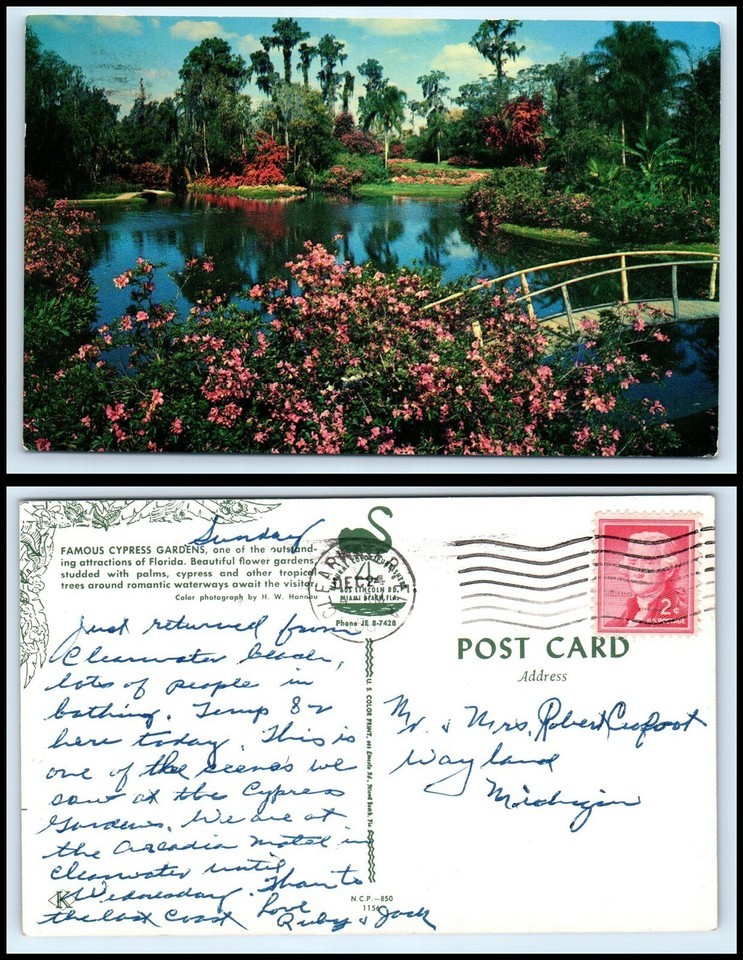 Sunday
FAMOUS CYPRESS GARDENS, one of the outstand-
ing attractions of Florida. Beautiful flower gardens
studded with palms, cypress and other tropical
trees around romantic waterways await the visitor.
Color photograph by H. W. Hannau
Just returned from
Clearwater beach,
lots of people in
bathing. Temp 82
here today. This is
one of the scenes we
saw at the Cypress
Gardens. We are at
the Arcadia Motel in
Clearwater until
Wednesday. Then to
the East Coast Love
Ruby & Jack
K
CLEARWATER
DEC
605 LINCOLN RD.
MIAMI BEACH, FLA.
Phone JE 8-7428
U. S. COLOR PRINT
N.C.P.—850
1156
2¢
U.S. POSTAGE
POST CARD
Address
Mr. & Mrs. Robert
Wayland
Michigan